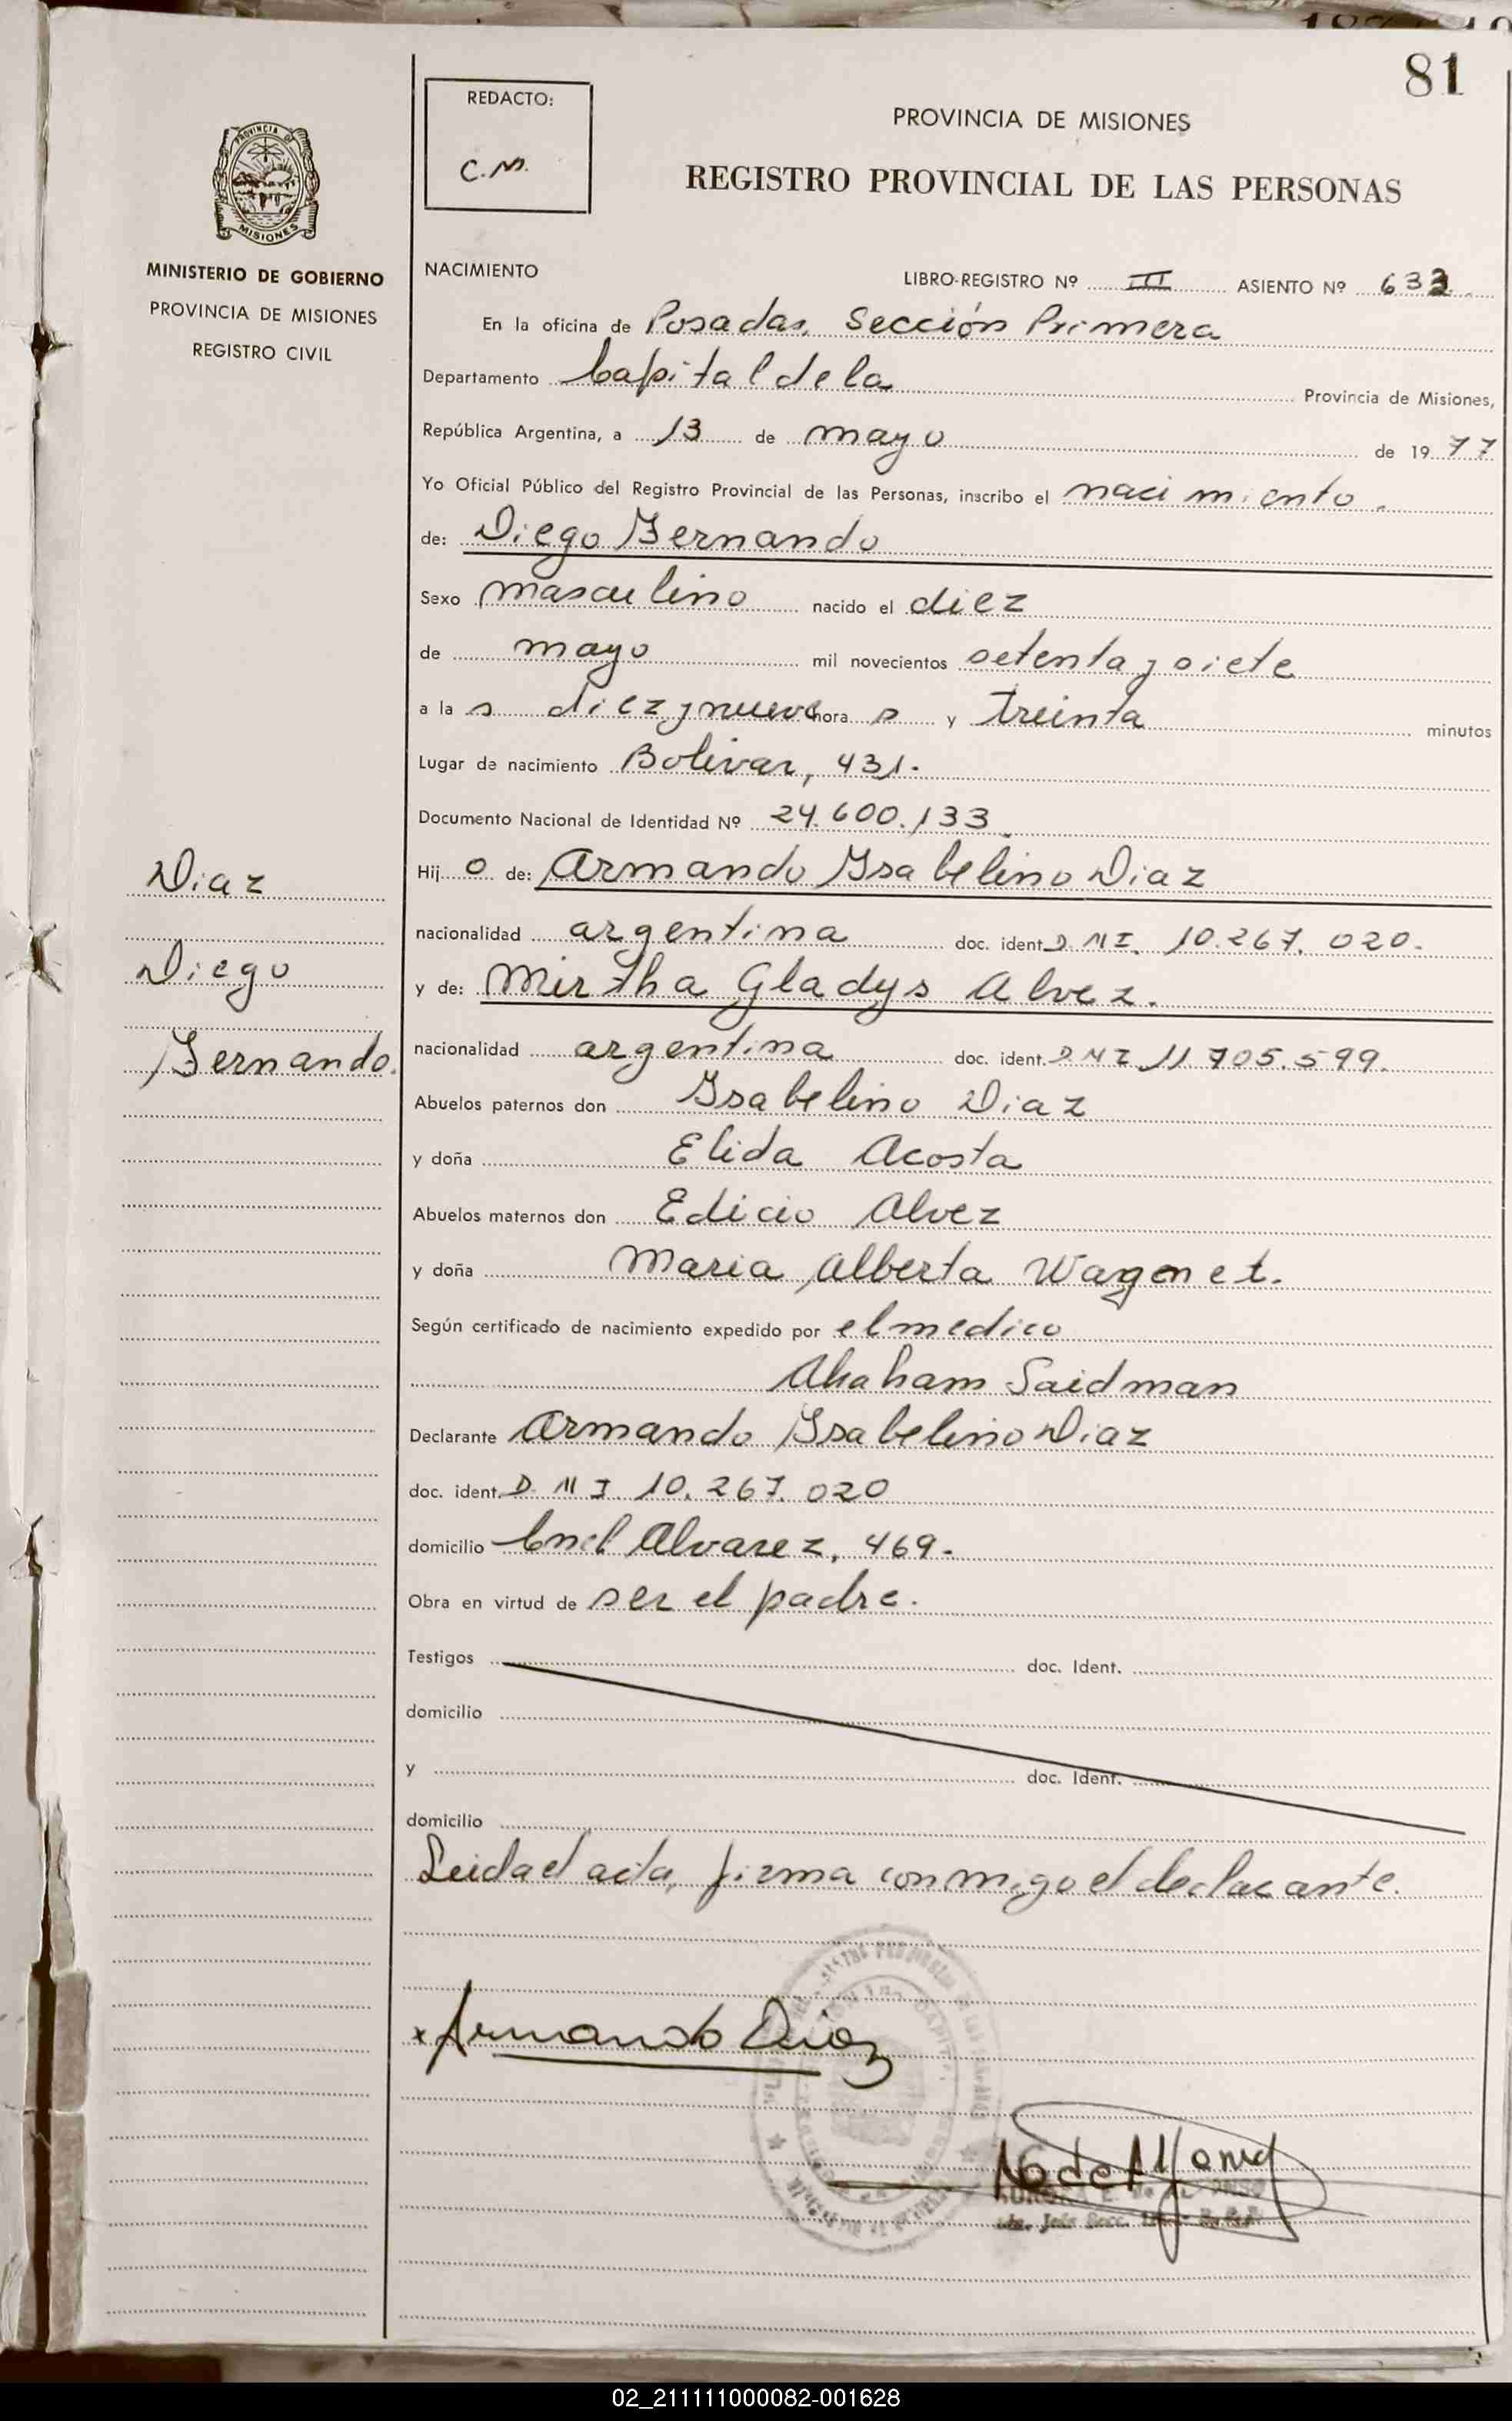 81
REDACTO:
C.M.
PROVINCIA DE MISIONES
REGISTRO PROVINCIAL DE LAS PERSONAS
PROVINCIA DE
MISIONES
MINISTERIO DE GOBIERNO
PROVINCIA DE MISIONES
REGISTRO CIVIL
NACIMIENTO LIBRO-REGISTRO Nº III ASIENTO Nº 633
En la oficina de Posadas, Sección Primera
Departamento Capital de la Provincia de Misiones,
República Argentina, a 13 de mayo de 1977
Yo Oficial Público del Registro Provincial de las Personas, inscribo el nacimiento.
de: Diego Fernando
Sexo masculino nacido el diez
de mayo mil novecientos setenta y siete
a las diez y nueve horas y treinta minutos
Lugar de nacimiento Bolivar, 431.
Documento Nacional de Identidad Nº 24.600.133.
Hijo de: Armando Ysabelino Diaz
nacionalidad argentina doc. ident. D.N.I. 10.267.020.
y de: Mirtha Gladys Alvez.
nacionalidad argentina doc. ident. D.N.I 11.705.599.
Abuelos paternos don Ysabelino Diaz
y doña Elida Acosta
Abuelos maternos don Edicio Alvez
y doña Maria Alberta Wagenet.
Según certificado de nacimiento expedido por el medico
Abaham Saidman
Declarante Armando Ysabelino Diaz
doc. ident. D.N.I. 10.267.020
domicilio Cnel Alvarez, 469.
Obra en virtud de ser el padre.
Testigos doc. Ident.
domicilio
y doc. Ident.
domicilio
Leida el acta, firma conmigo el declarante.
Armando Diaz
Diaz
Diego
Fernando.
02_211111000082-001628